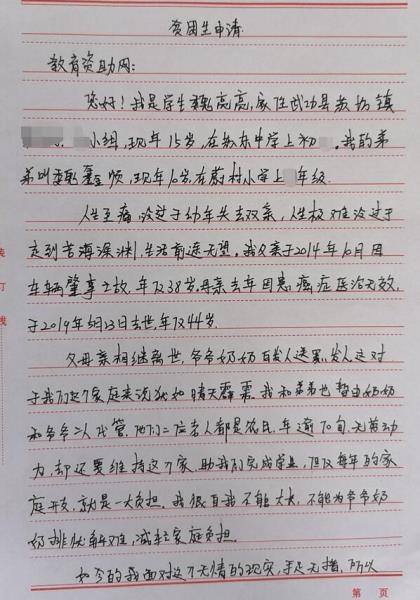 贫困生申请
教育资助网:
您好!我是学生魏亮亮,家住武功县苏坊镇
小组,现年15岁,在苏东中学上初。我的弟
弟叫魏鑫顺,现年10岁,在蔚村小学上年级.
人生至痛,没过于幼年失去双亲,人生极难没过于
走到苦海深渊,生活前途无望。我父亲于2014年10月因
车辆肇事亡故,年仅38岁.母亲去年因患癌症医治无效,
于2019年6月23日去世,年仅44岁.
父母亲相继离世,爷爷奶奶白发人送黑发人这对
于我们这个家庭来说犹如晴天霹雳.我和弟弟也暂由奶奶
和爷爷二人代管,他们二位老人都是农民,年逾70旬,无劳动
力,却还要维持这个家,助我们完成学业,但仅每年的家
庭开支,就是一大负担。我恨自我不能大长,不能为爷爷奶
奶排忧解难,减轻家庭负担.
如今的我面对这个无情的现实,手足无措,所以
装
订
线
第 页